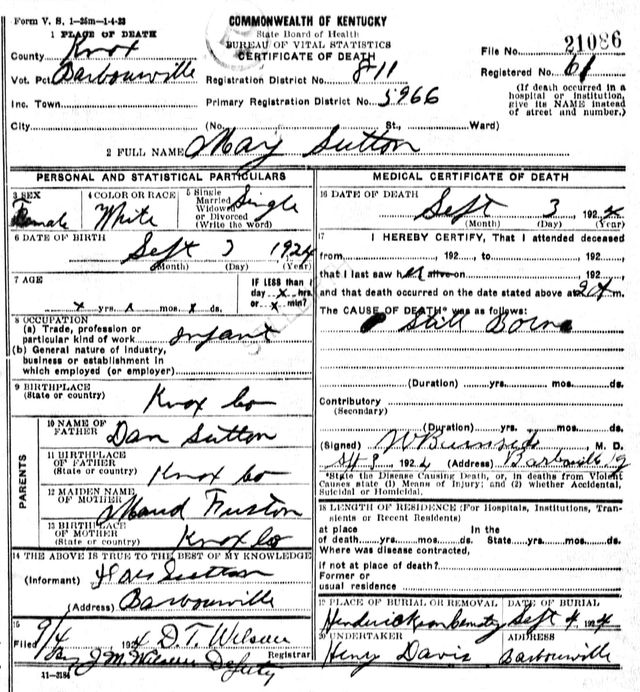 Form V. S. 1-35m-1-4-23
COMMONWEALTH OF KENTUCKY
State Board of Health
BUREAU OF VITAL STATISTICS
CERTIFICATE OF DEATH
1 PLACE OF DEATH
County Knox
File No. 21086
Vot. Pct Barbourville
Registration District No. 811
Registered No. 61
Inc. Town
Primary Registration District No. 5966
(If death occurred in a hospital or institution, give its NAME instead of street and number.)
City (No. St., Ward)
2 FULL NAME May Sutton
PERSONAL AND STATISTICAL PARTICULARS
3 SEX Female
4 COLOR OR RACE White
5 Single Married Widowed or Divorced (Write the word) Single
6 DATE OF BIRTH Sept 3 1924
(Month) (Day) (Year)
7 AGE x yrs. x mos. x ds.
IF LESS than 1 day x hrs. or x min?
8 OCCUPATION
(a) Trade, profession or particular kind of work infant
(b) General nature of industry, business or establishment in which employed (or employer)
9 BIRTHPLACE
(State or country) Knox Co
PARENTS
10 NAME OF FATHER Dan Sutton
11 BIRTHPLACE OF FATHER
(State or country) Knox Co
12 MAIDEN NAME OF MOTHER Maud
13 BIRTHPLACE OF MOTHER
(State or country) Knox Co
14 THE ABOVE IS TRUE TO THE BEST OF MY KNOWLEDGE
(Informant) Sutton
(Address) Barbourville
15
Filed 9/4 1924 D.T. Wilson
Registrar
By J M Wilson Deputy
11-3184
MEDICAL CERTIFICATE OF DEATH
16 DATE OF DEATH Sept 3 1924
(Month) (Day) (Year)
17 I HEREBY CERTIFY, That I attended deceased
from 192 , to 192 ,
that I last saw h alive on 192 ,
and that death occurred on the date stated above at m.
The CAUSE OF DEATH* was as follows:
Still Borne
(Duration) yrs. mos. ds.
Contributory
(Secondary)
(Duration) yrs. mos. ds.
(Signed) Burnside M. D.
192 4 (Address) Barbourville Ky
*State the Disease Causing Death, or, in deaths from Violent Causes state (1) Means of Injury; and (2) whether Accidental, Suicidal or Homicidal.
18 LENGTH OF RESIDENCE (For Hospitals, Institutions, Transients or Recent Residents)
at place of death yrs. mos. ds. In the State yrs. mos. ds.
Where was disease contracted,
if not at place of death?
Former or
usual residence
19 PLACE OF BURIAL OR REMOVAL
DATE OF BURIAL
Hendrickson Cemetry Sept 4 1924
20 UNDERTAKER
ADDRESS
Henry Davis Barbourville